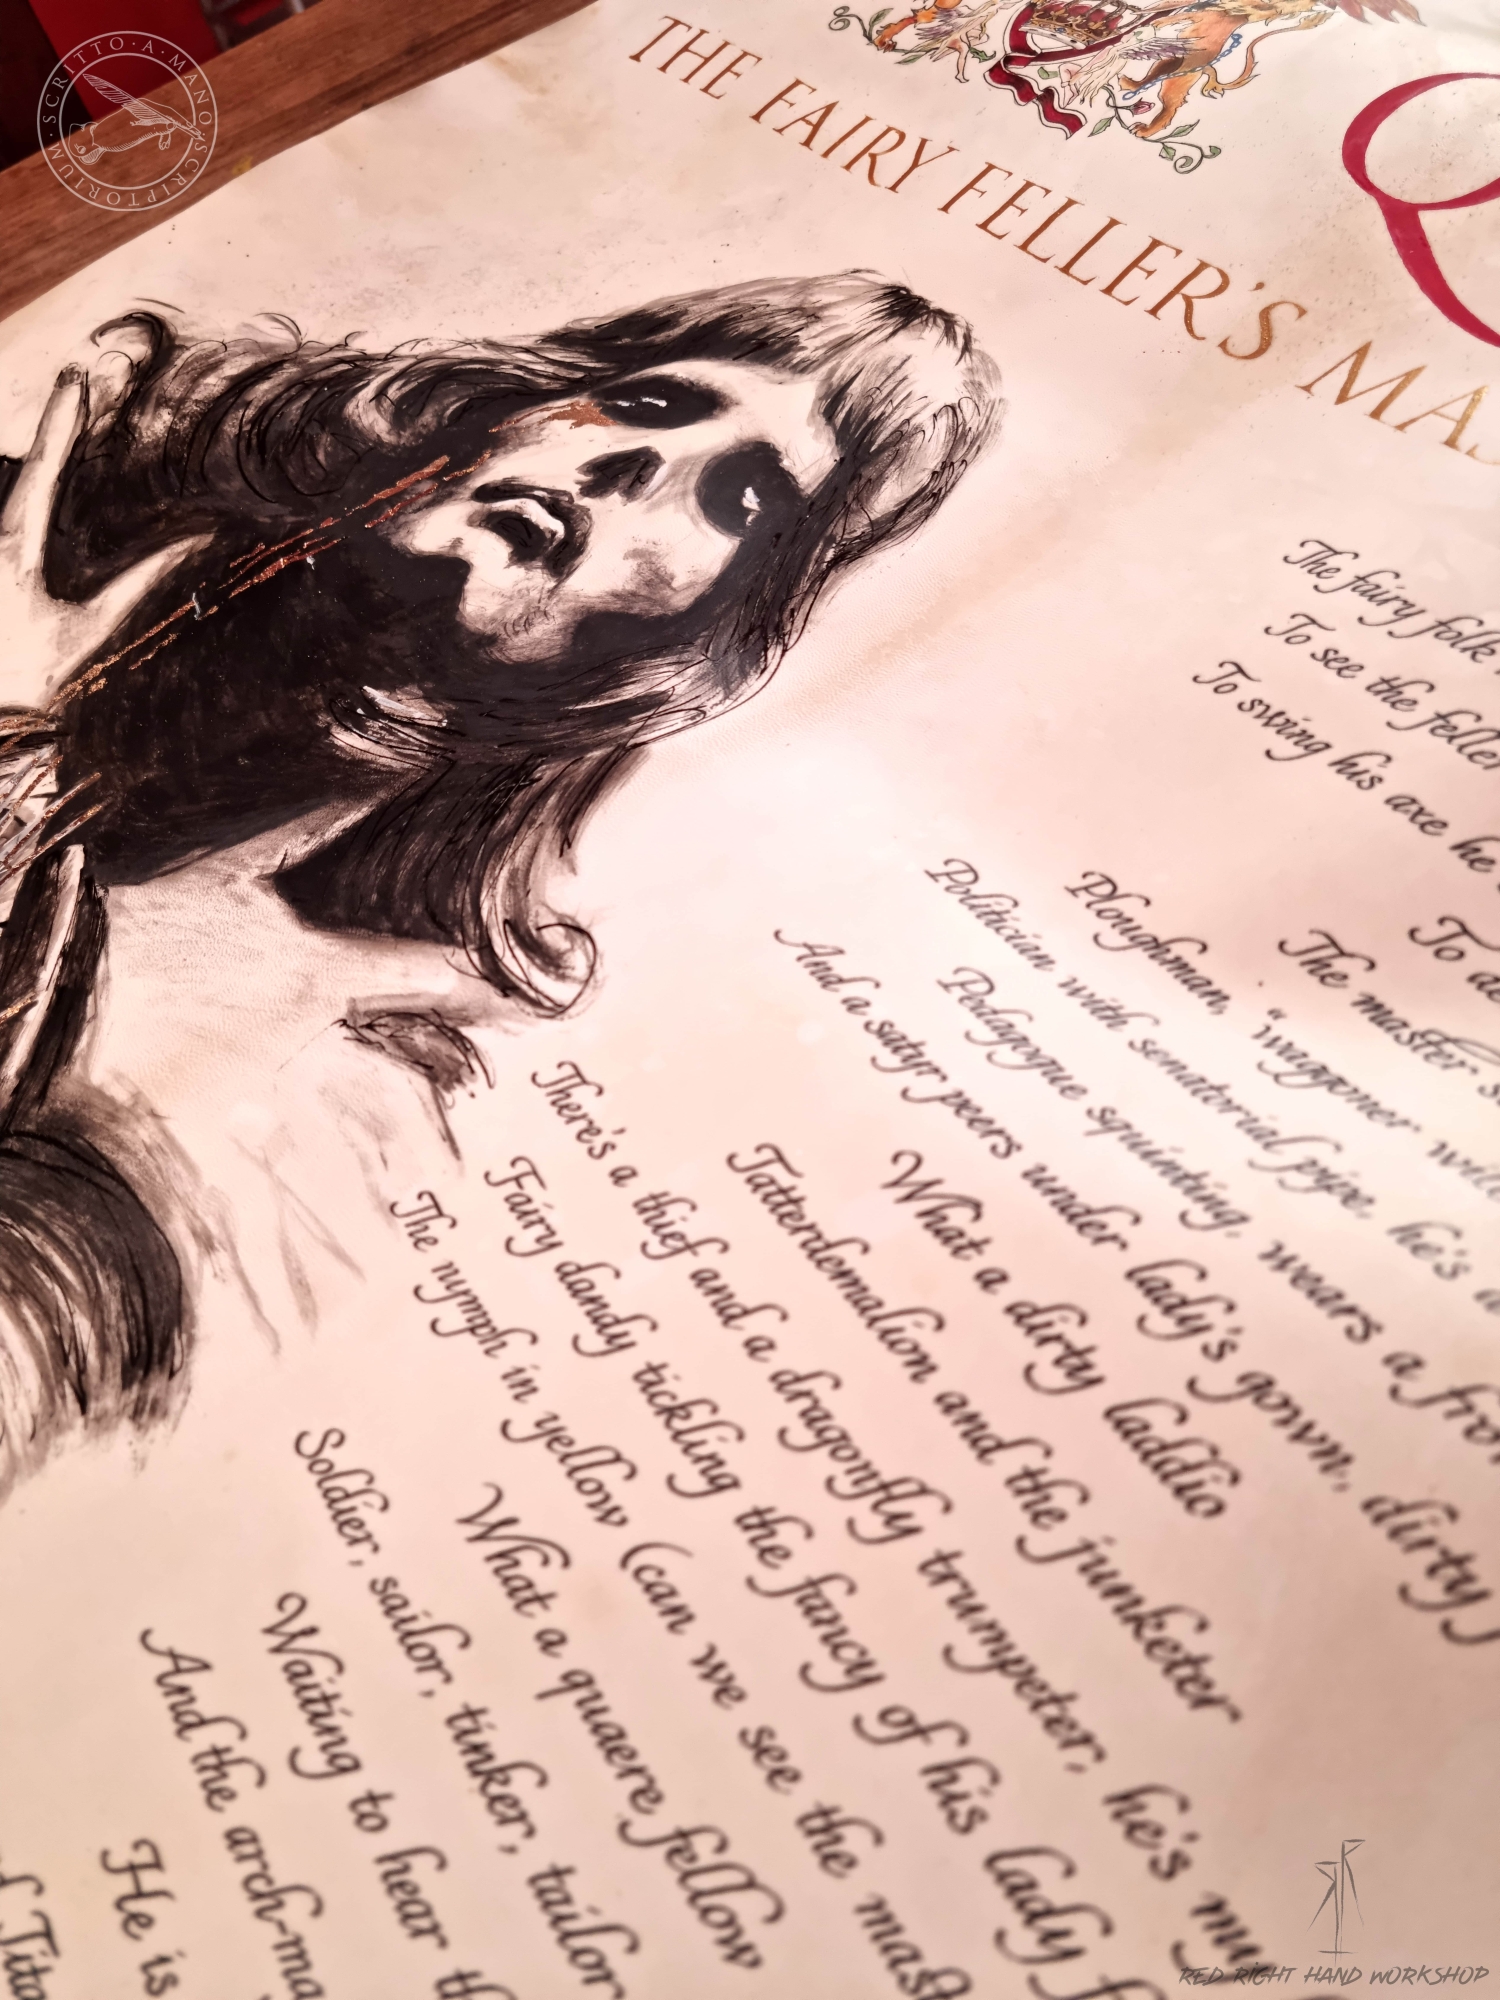 SCRITTO·A·MANO·SCRIPTORIUM·
Q
THE FAIRY FELLER'S MAS
The fairy folk
To see the feller
To swing his axe he
To de
The master
Ploughman, "waggoner will
Politician with senatorial pipe, he's a
Pedagogue squinting, wears a fro
And a satyr peers under lady's gown, dirty f
What a dirty laddio
Tatterdemalion and the junketer
There's a thief and a dragonfly trumpeter, he's my
Fairy dandy tickling the fancy of his lady f
The nymph in yellow (can we see the mast
What a quaere fellow
Soldier, sailor, tinker, tailor
Waiting to hear th
And the arch-ma
He is
Tita
RED RIGHT HAND WORKSHOP